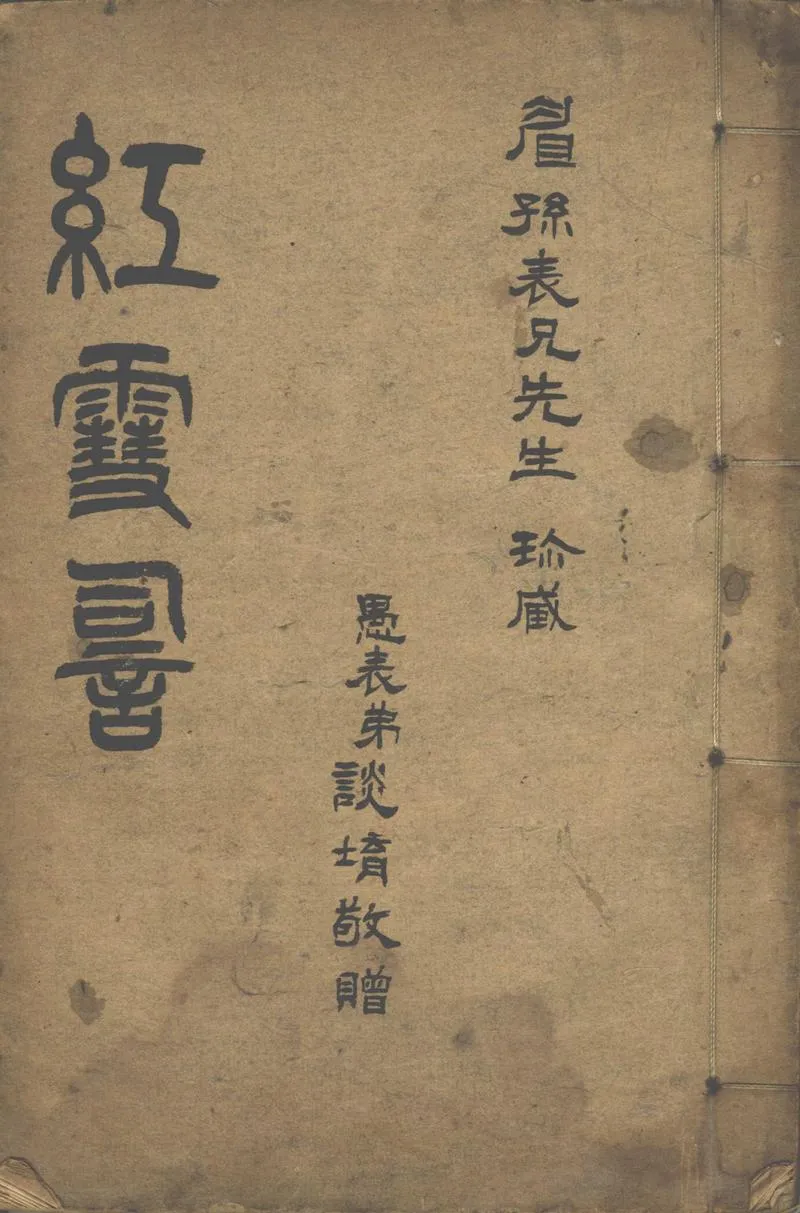 眉孫表兄先生 珍藏
愚表弟談堉敬贈
紅䨮䛐